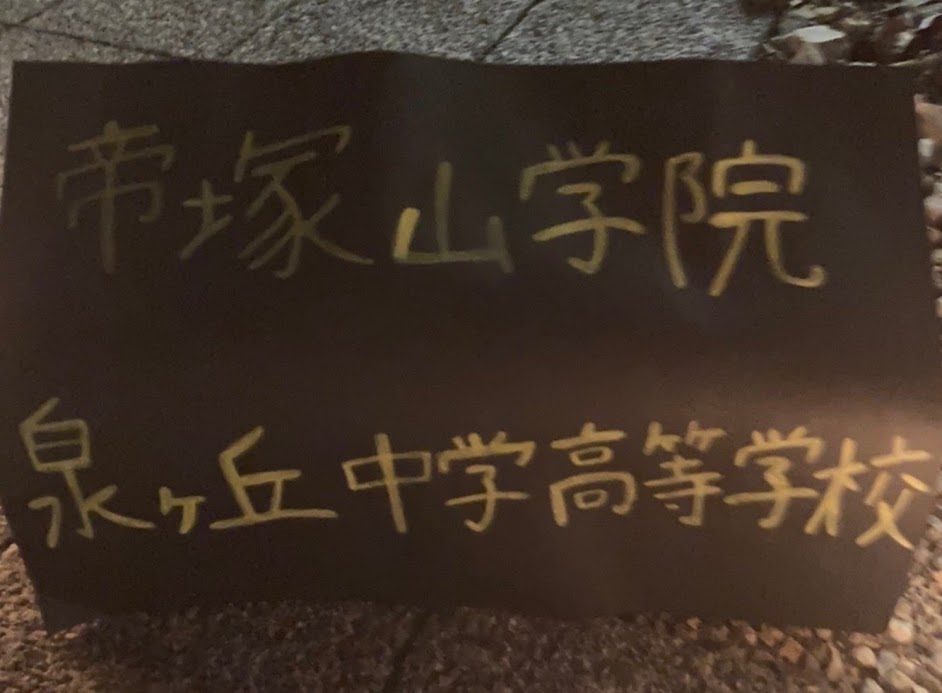 帝塚山学院
泉ヶ丘中学高等学校